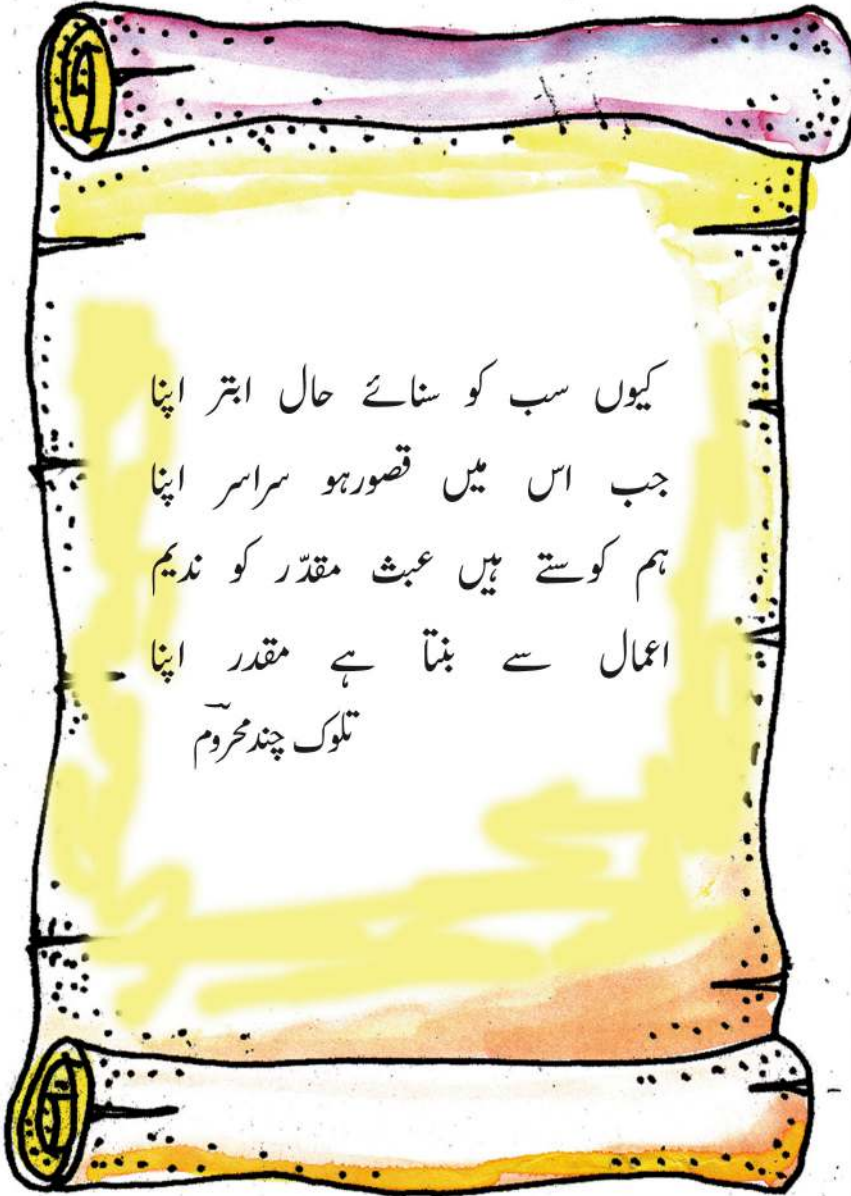 کیوں سب کو سنائے حال ابتر اپنا
جب اس میں قصورہو سراسر اپنا
ہم کوستے ہیں عبث مقدّر کو ندیم
اعمال سے بنتا ہے مقدر اپنا
تلوک چندمحروم